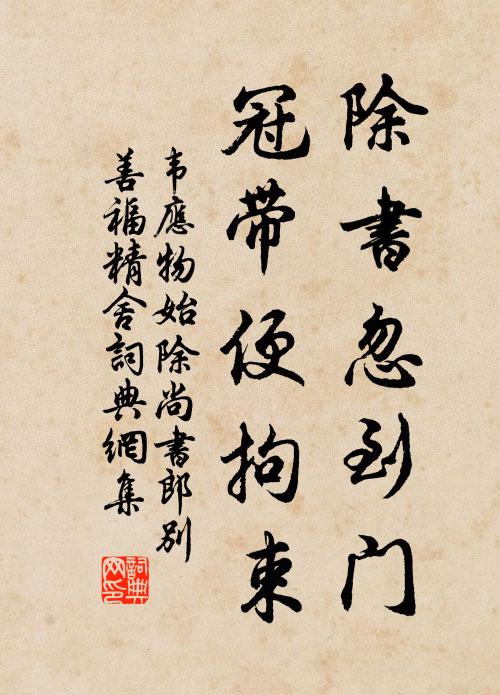 除書忽到门
冠带便拘束
韦應物始除尚書郎别
善福精舍詞典網集
詞典
网印